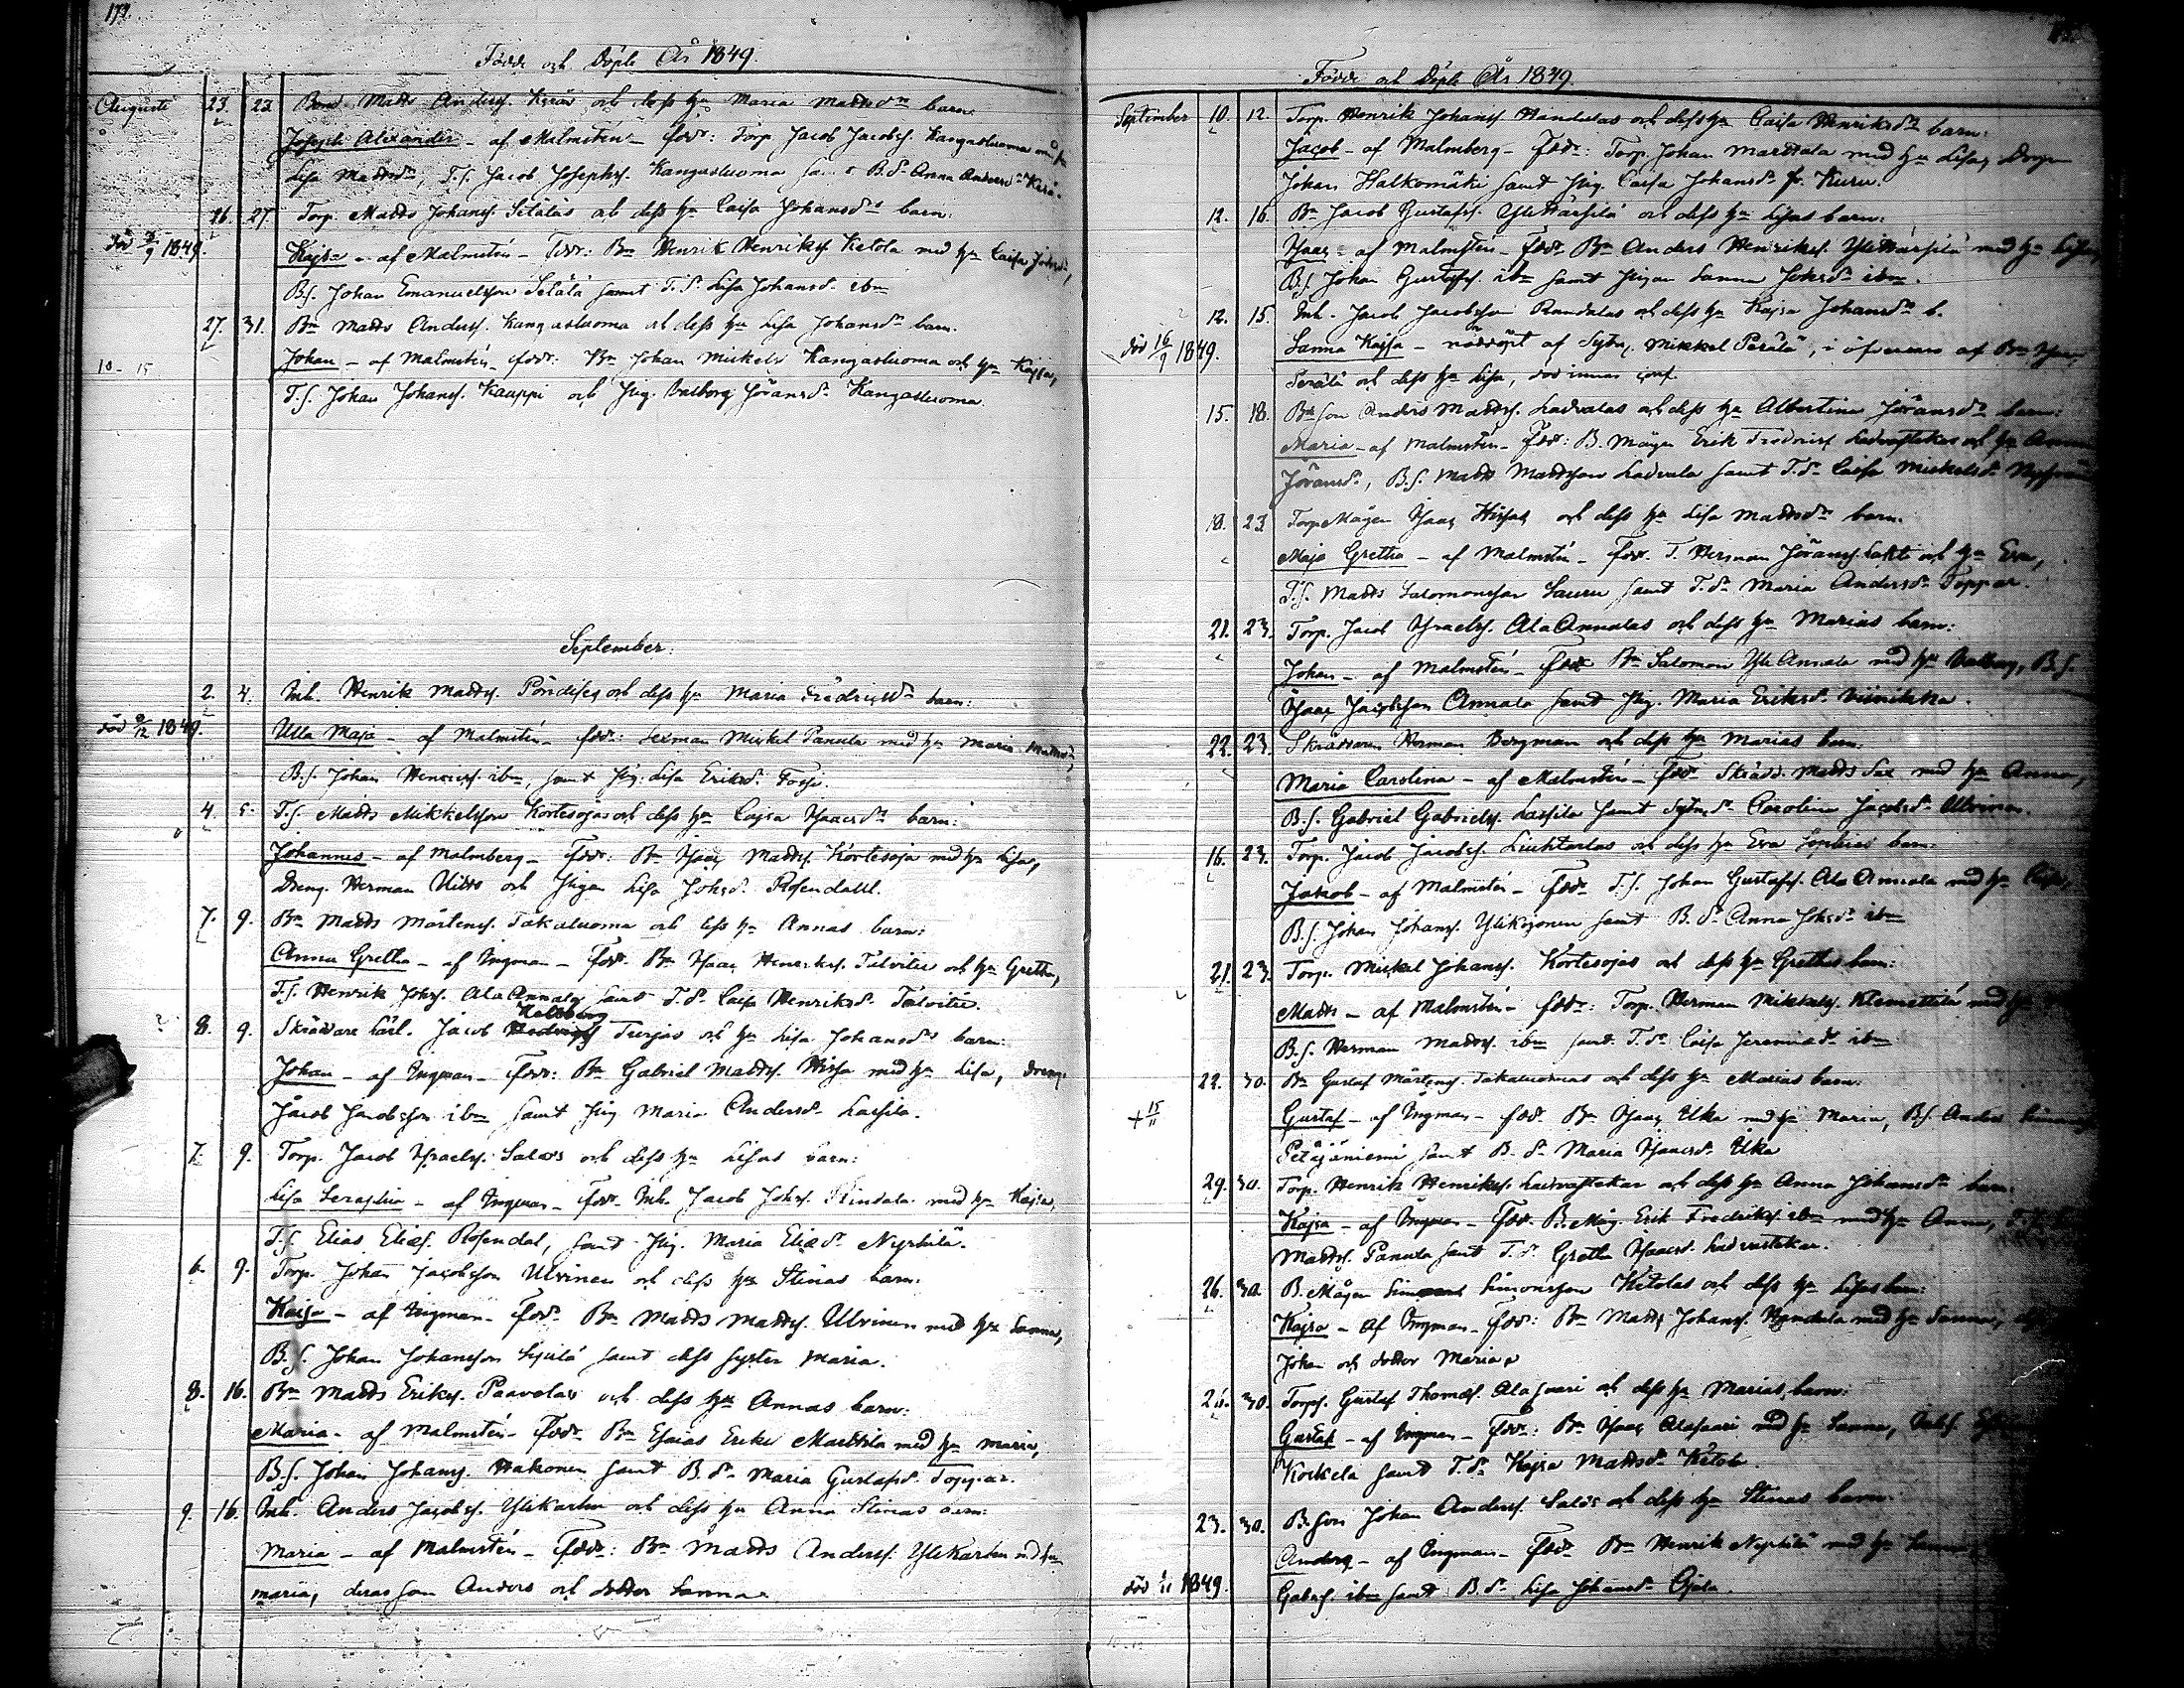 172.
Födde och Döpte År 1849.
Augusti 23. 23. Bond. Matts Anders. Keräs och dess hu Maria Mattsdrs barn
Joseph Alexander - af Malmstén - fadd: Torp. Jacob Jacobss. Kangasluoma
Lisa Mattsdr, T.S. Jacob Josephss. Kangasluoma B.dr Anna Andersdr Kerä.
26. 27. Torp. Matts Johanss. Setäläs och dess hu Caisa Johansdrs barn:
död 3/9 1849. Kajsa - af Malmstén - Fadd: Bn Henrik Henrikss. Ketola med hu Caisa Johsdr,
B.S. Johan Emanuelsson Setälä samt T.dr Lisa Johansdr ibm
27. 31. Bn Matts Anderss. Kangasluoma och dess hu Lisa Johansdrs barn.
10 - 15 Johan - af Malmstén - fadd: Bn Johan Mickels Kangasluoma och hu Kajsa,
T.S. Johan Johanss. Kauppi och Pig. Valborg Göransdr Kangasluoma.
September.
2. 4. Inh. Henrik Mattss. och dess hu Maria Fredricsdrs barn:
död 9/12 1849. Ulla Maja - af Malmstén - fadd: Sexman Mickel Panula med hu Maria
B.S. Johan Henricss. ibm, samt Pig. Lisa Eriksdr
4. 5. T.S. Matts Mikkelsson Kortesojas och dess hu Cajsa Isaacsdrs barn:
Johannes - af Malmberg - Fadd: Bn Isaac Mattss. Kortesoja med hu Lisa,
Dreng. Herman och Pigan Lisa Johsdr Rosendahl.
7. 9. Bn Matts Mårtenss. Takaluoma och dess hu Annas barn:
Anna Gretha - af Ingman - Fadd. Bn Isaac Henrikss. Talvitie och hu Gretha,
T.S. Henrik Johss. AlaAnnala samt T.dr Caisa Henriksdr Talvitie.
8. 9. Skräddare Lärl. Jacob Turjas och hu Lisa Johansdrs barn:
Johan - af Ingman - Fadd: Bn Gabriel Mattss. Hissa med hu Lisa, dreng.
Jacob Jacobsson ibm samt Pig Maria Andersdr Lassila.
7. 9. Torp. Jacob Israelss. Salos och dess hu Lisas barn:
Lisa Seraphia - af Ingman - Fadd. Inh. Jacob Johss. Rindala med hu Kajsa,
T.S. Elias Eliass. Rosendal, samt Pig. Maria Eliædr Nyrhilä.
6. 9. Torp. Johan Jacobsson Ulvinen och dess hu Stinas barn:
Kaisa - af Ingman - Fadd. Bn Matts Mattss. Ulvinen med hu Sanna,
B.S. Johan Johansson samt dess syster Maria.
8. 16. Bn Matts Erikss. Paavolas och dess hu Annas barn:
Maria - af Malmstén - Fadd. Bn Esaias Eriks Marttila med hu Maria,
B.S. Johan Johanss. Hakonen samt B.dr Maria Gustafsdr Toppar.
9. 16. Inh. Anders Jacobss. Ylikarhu och dess hu Anna Stinas barn:
Maria - af Malmstén - Fadd: Bn Matts Anderss. Ylikarhu med hu
Maria, deras son Anders och dotter Sanna.
Födde och Döpte År 1849.
September 10. 12. Torp. Henrik Johanss. Handulas och dess hu Caisa Henriksdrs barn:
Jacob - af Malmberg - Fadd: Torp. Johan Marttala med hu Lisa, dreng
Johan Halkomäki samt Pig. Caisa Johansdr fr. Kuru.
12. 16. Bn Jacob Gustafss. YliHärsilä och dess hu Lisas barn:
Isaac - af Malmstén - Fadd. Bn Anders Henrikss. YliHärsilä med hu Lisa,
B.S. Johan Gustafss. ibm samt Pigan Sanna Johsdr ibm.
12. 15. Inh. Jacob Jacobsson Randalas och dess hu Kajsa Johansdrs b.
död 16/9 1849. Sanna Kajsa - nöddöpt af Sytn. Mickel Perälä, i öfvervaro af Bn Isaac
Perälä och dess hu Lisa, död innan conf.
15. 18. Bd. son Anders Mattss. Ladvalas och dess hu Albertina Göransdrs barn:
Maria - af Malmstén - Fadd: B. Mågen Erik Fredriss. Ladvastakas och hu Anna
Göransdr, B.S. Matts Mattsson Ladvala samt T.dr Caisa Mickelsdr
18. 23. Torp Mågen Isaac Hissas och dess hu Lisa Mattsdrs barn.
Maja Gretha - af Malmstén - Fadd. T. Herman Göranss. Lakti och hu Eva,
T.S. Matts Salomonsson Sauru samt T.dr Maria Andersdr Toppar.
21. 23. Torp. Jacob Israelss. AlaAnnalas och dess hu Marias barn:
Johan - af Malmstén - Fadd Bn Salomon YliAnnala med hu Valborg, B.S.
Isaac Jacobsson Annala samt Pig. Maria Eriksdr Viinikka.
22. 23. Skräddaren Herman Bergman och dess hu Marias barn:
Maria Carolina - af Malmstén - Fadd. Skrädd. Matts Sax med hu Anna,
B.S. Gabriel Gabrielss. Lassila samt Sytn.dr Carolina Jacobsdr Ulvinen.
16. 23. Torp. Jacob Jacobss. Liuhtarlas och dess hu Eva Sophias barn:
Jakob - af Malmstén - Fadd. T.S. Johan Gustafss. AlaAnnala med hu Caisa,
B.S. Johan Johanss. Ylikojonen samt B.dr Anna Johsdr ibm
21. 23. Torp. Mickel Johanss. Kortesojas och dess hu Grethas barn:
Matts - af Malmstén - fadd: Torp. Herman Mikkelss. Klemettilä med hu
B.S. Herman Mattss. ibm samt T.dr Caisa Jeremiædr ibm
22. 30. Bn Gustaf Mårtenss. Takaluomas och dess hu Marias barn:
+ 15/11 Gustaf - af Ingman - fadd. Bn Isaac Ulka med hu Maria, B.S. Anders
Petäjäniemi samt B.dr Maria Isaacsdr Ulka
29. 30. Torp. Henrik Henrikss. Ladvastakas och dess hu Anna Johansdrs barn.
Kajsa - af Ingman - Fadd. B. Måg. Erik Fredrikss. ibm med hu Anna,
Mattss. Panula samt T.dr Gretha Isaacsdr Ladvastaka.
26. 30. B. Mågen Simon Simonsson Ketolas och dess hu Lisas barn:
Kajsa - af Ingman - Fadd: Bn Matts Johanss. Handula med hu Sanna,
Johan och dotter Maria
26. 30. Torps. Gustaf Thomæs. Alasaari och dess hu Marias barn:
Gustaf - af Ingman - Fadd: Bn Isaac Alasaari med hu Sanna,
Korkela samt T.dr Kajsa Mattsdr Ketola.
23. 30. B. son Johan Anderss. Salos och dess hu Stinas barn.
Anders - af Ingman - Fadd. Bn Henrik Nyrhilä med hu Sanna
död 6/11 1849. Gabrs. ibm samt B.dr Lisa Johansdr Ojala.